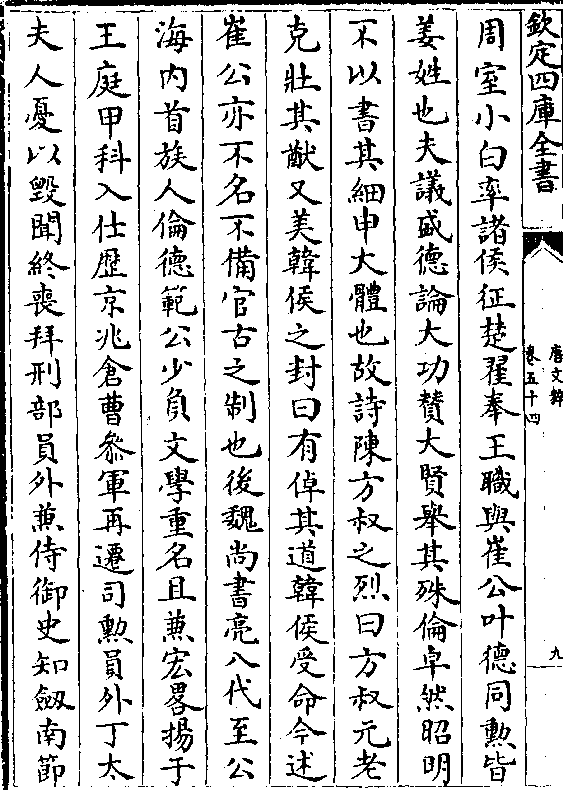 欽定四庫全書
唐文粹
卷五十四
九
周室小白率諸侯征楚翟奉王職與崔公叶德同勲皆
姜姓也夫議盛德論大功賛大賢舉其殊倫卓然昭明
不以書其細申大體也故詩陳方叔之烈曰方叔元老
克壯其猷又美韓侯之封曰有倬其道韓侯受命今述
崔公亦不名不備官古之制也後魏尚書亮八代至公
海内首族人倫德範公少負文學重名且兼宏畧揚于
王庭甲科入仕歴京兆倉曹叅軍再遷司勲員外丁太
夫人憂以毀聞終喪拜刑部員外兼侍御史知劔南節